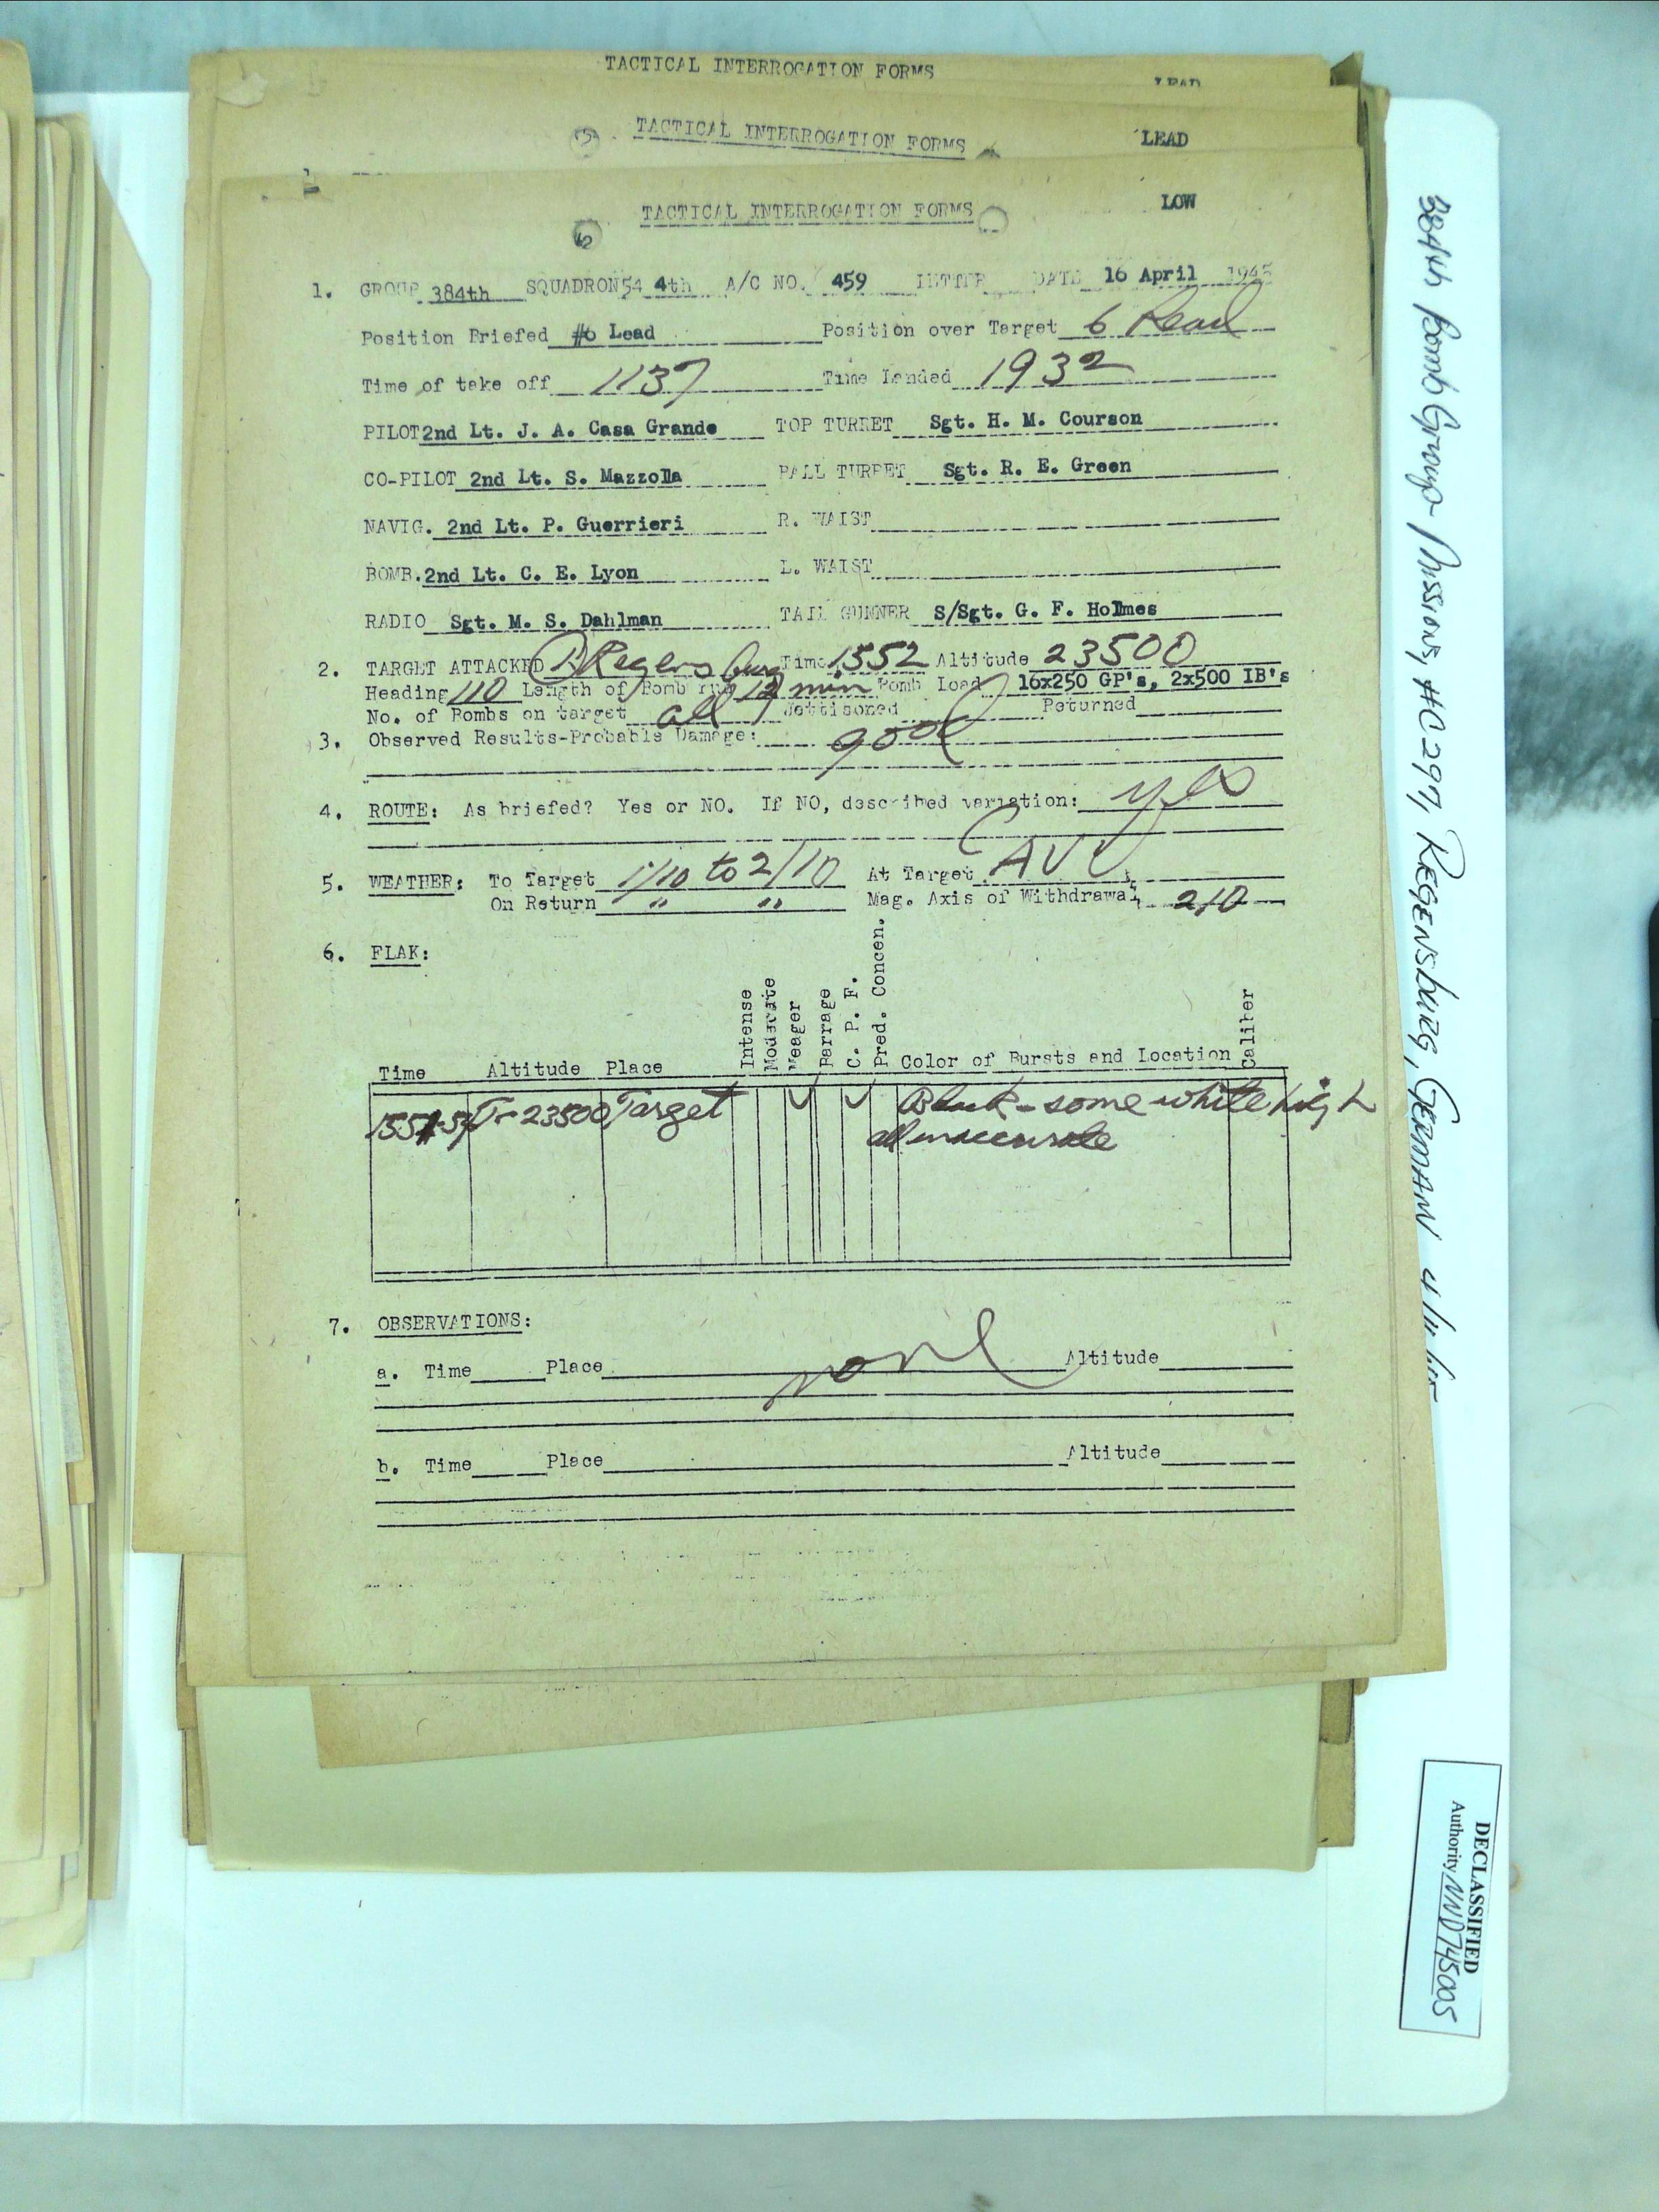 TACTICAL INTERROGATION FORMS
LEAD
TACTICAL INTERROGATION FORMS LEAD
TACTICAL INTERROGATION FORMS LOW
1. GROUP 384th SQUADRON 544th A/C NO. 459 LETTER DATE 16 April 1945
Position Briefed #6 Lead Position over Target 6 Lead
Time of take off 1137 Time Landed 1932
PILOT 2nd Lt. J. A. Casa Grande TOP TURRET Sgt. H. M. Courson
CO-PILOT 2nd Lt. S. Mazzolla BALL TURRET Sgt. R. E. Green
NAVIG. 2nd Lt. P. Guerrieri R. WAIST
BOMB. 2nd Lt. C. E. Lyon L. WAIST
RADIO Sgt. M. S. Dahlman TAIL GUNNER S/Sgt. G. F. Holmes
2. TARGET ATTACKED Regensburg Time 1552 Altitude 23500
Heading 110 Length of Bomb run 12 min Bomb Load 16x250 GP's, 2x500 IB's
No. of Bombs on target all Jettisoned Returned
3. Observed Results-Probable Damage: good
4. ROUTE: As briefed? Yes or NO. If NO, described variation: yes
5. WEATHER: To Target 1/10 to 2/10 At Target CAVU
On Return " " Mag. Axis of Withdrawal 210
6. FLAK:
Time Altitude Place Intense Moderate Meager Barrage C. P. F. Pred. Concen. Color of Bursts and Location Caliber
23500 Target Black - some white high
all inaccurate
7. OBSERVATIONS:
a. Time Place none Altitude
b. Time Place Altitude
384th Bomb Group Mission, #C 297, REGENSBURG, GERMANY
DECLASSIFIED
Authority NND 745005